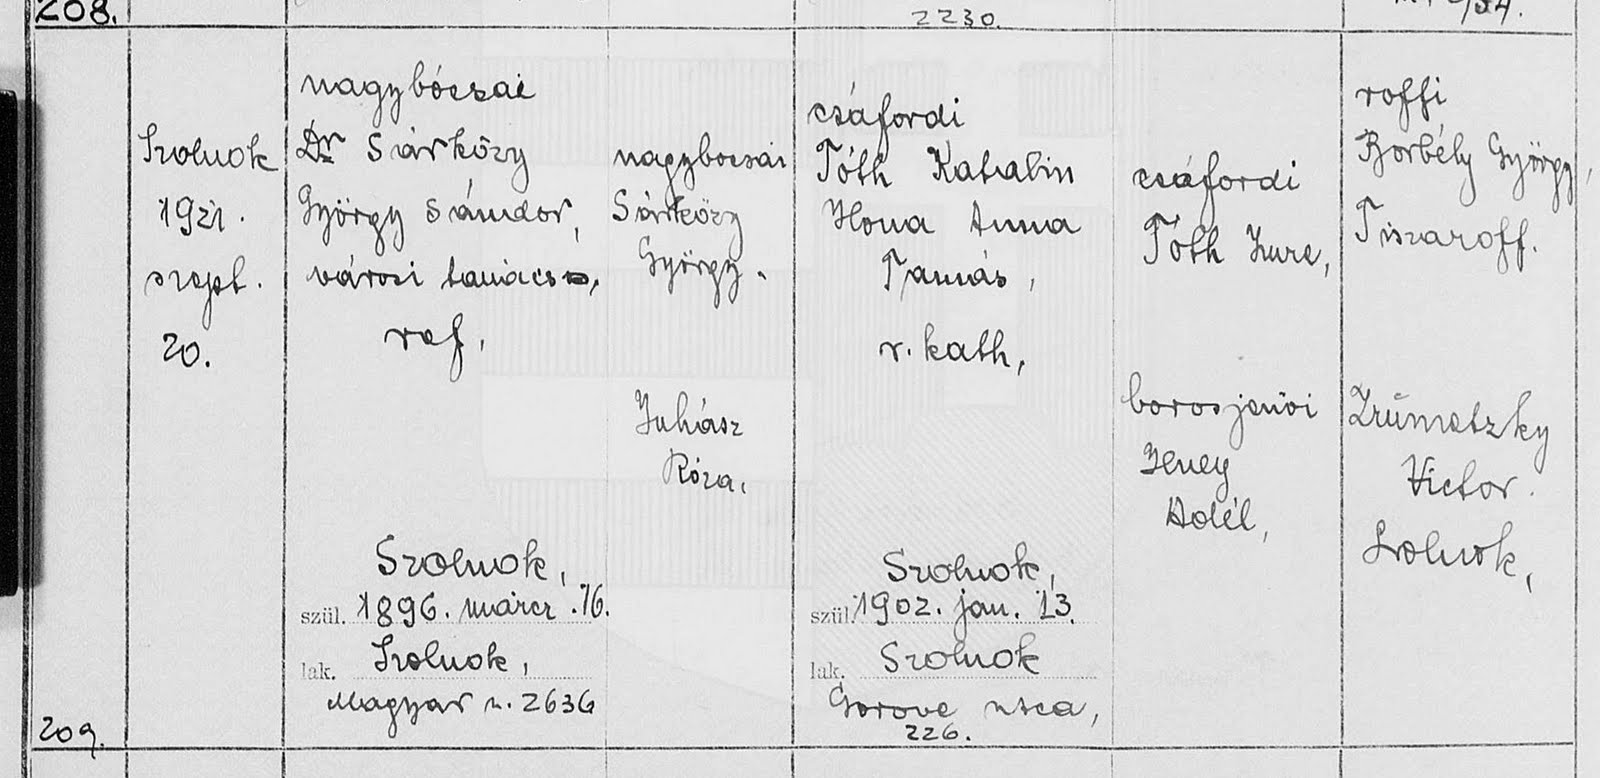 208.
2230.
Szolnok
1921.
szept.
20.
nagybócsai
Dr Sárközy
György Sándor,
városi tanácsn,
ref,
Szolnok,
szül. 1896. márcz. 16.
lak. Szolnok,
Magyar u. 2636
nagybocsai
Sárközy
György.
Juhász
Róza,
csáfordi
Tóth Katalin
Ilona Anna
Tamás,
r. kath,
Szolnok,
szül. 1902. jan. 13.
lak. Szolnok
Gorove utca,
226.
csáfordi
Tóth Imre,
borosjenői
Jeney
Adél,
roffi
Borbély György,
Tiszaroff.
Victor.
Szolnok,
209.